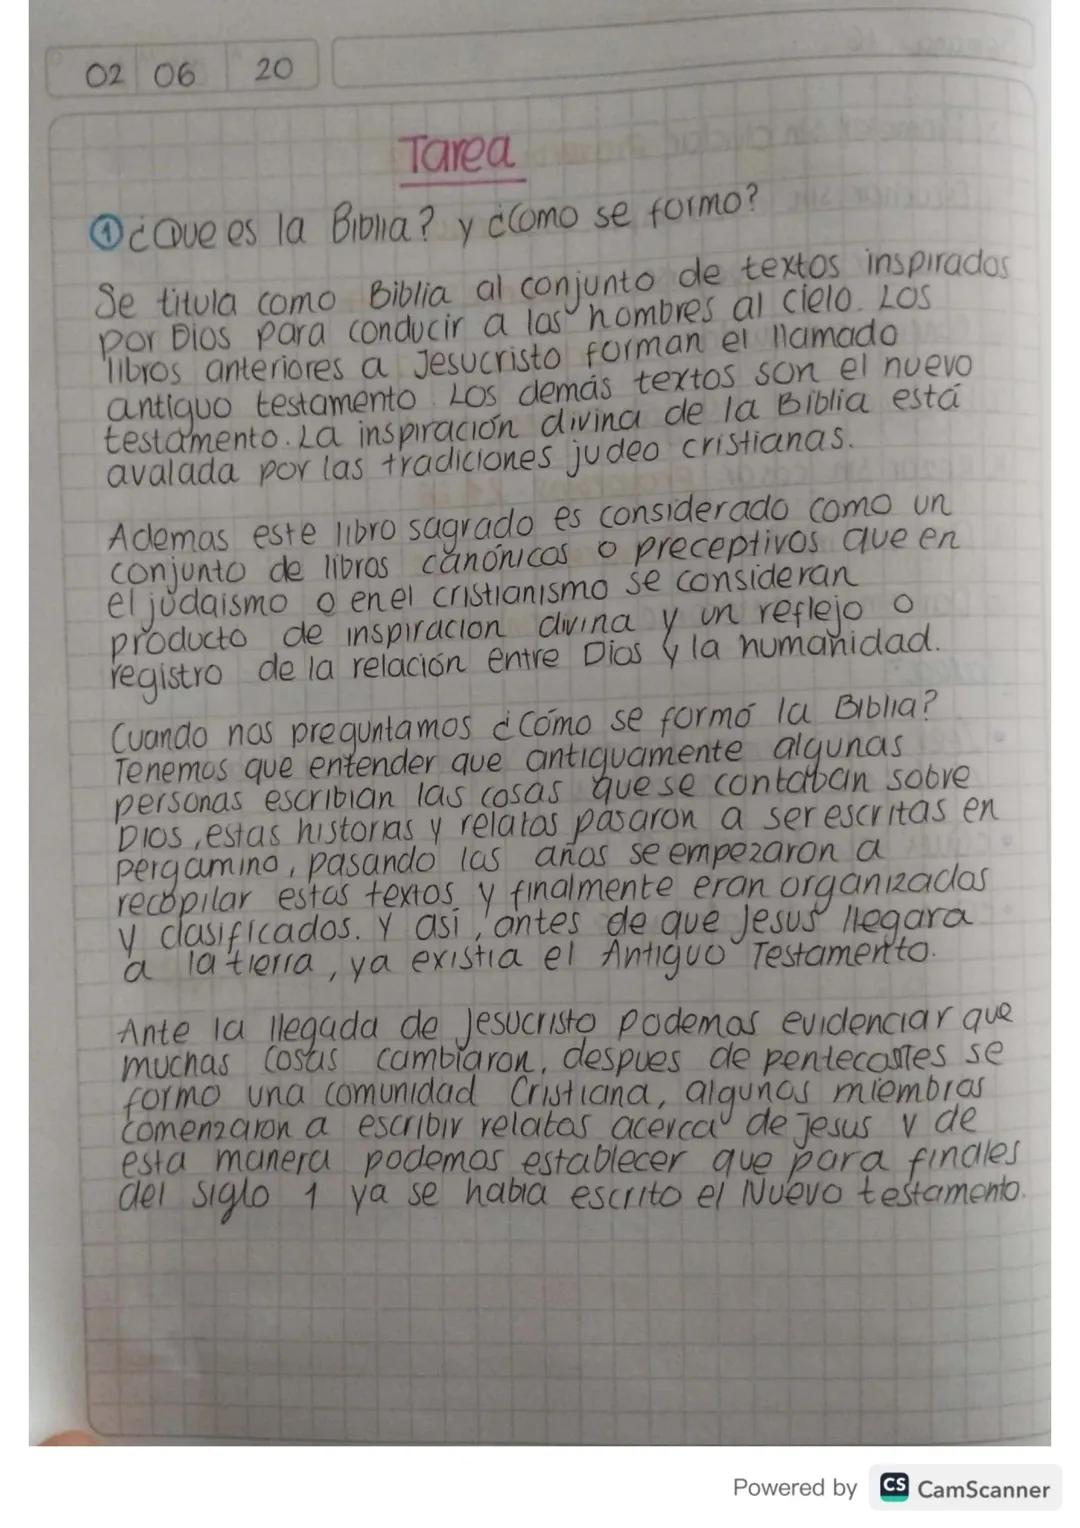 02 06 20
Tarea
① ¿Que es la Biblia? y ¿Como se formo?
Se titula como Biblia al conjunto de textos inspirados
por Dios para conducir a los hombres al cielo. Los
libros anteriores a Jesucristo forman el llamado
antiguo testamento. Los demás textos son el nuevo
testamento. La inspiración divina de la Biblia está
avalada por las tradiciones judeo cristianas.
Ademas este libro sagrado es considerado como un
conjunto de libros canónicos o preceptivos que en
el judaismo o en el cristianismo se consideran
producto de inspiracion divina y un reflejo o
registro de la relación entre Dios y la humanidad.
Cuando nos preguntamos ¿Cómo se formó la Biblia?
Tenemos que entender que antiguamente algunas
personas escribian las cosas que se contaban sobre
Dios, estas historias y relatos pasaron a ser escritas en
pergamino, pasando los años se empezaron a
recopilar estos textos y finalmente eran organizados
y clasificados. Y asi, antes de que Jesus llegara
a la tierra, ya existia el Antiguo Testamento.
Ante la llegada de Jesucristo podemos evidenciar que
muchas cosas cambiaron, despues de pentecostes se
formo una comunidad Cristiana, algunos miembros
comenzaron a escribir relatos acerca de Jesus y de
esta manera podemos establecer que para finales
del siglo 1 ya se habia escrito el Nuevo testamento.
Powered by CS CamScanner